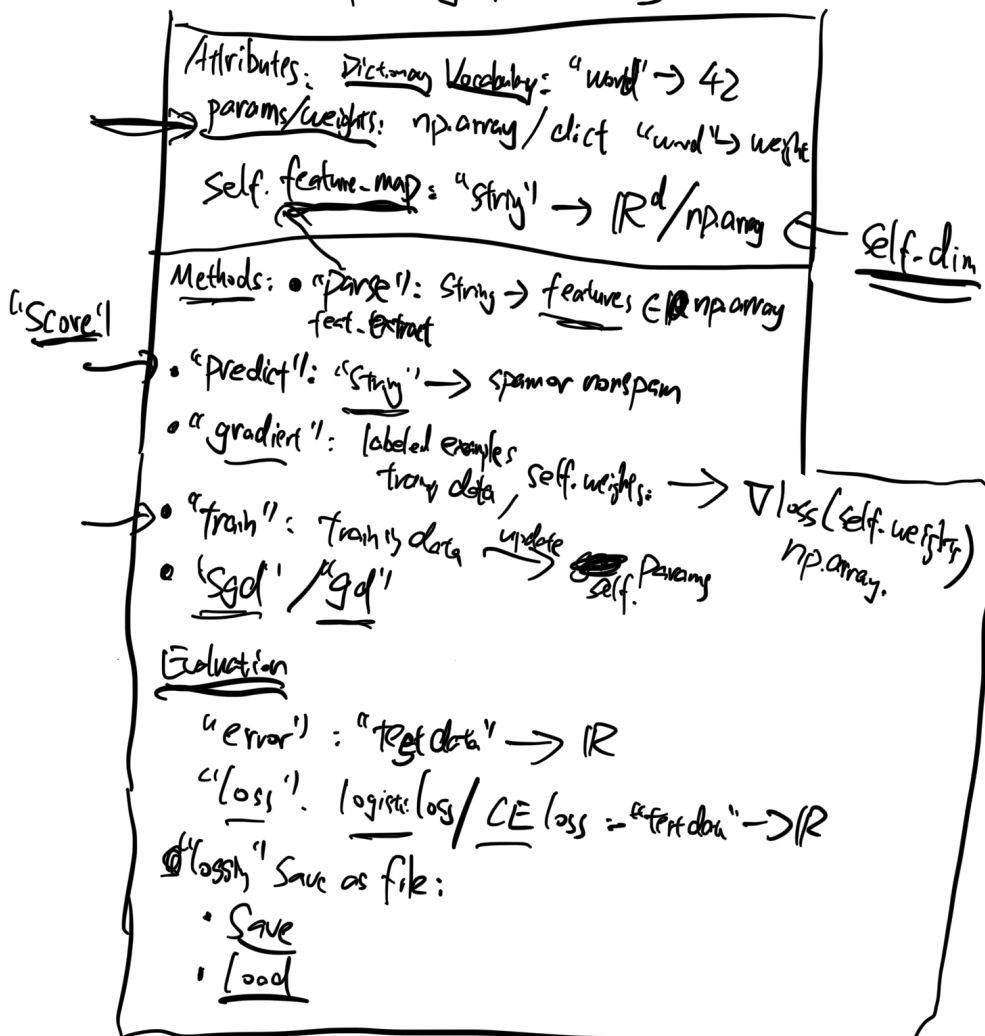 Attributes: Dictionary Vocabulary: "word" → 42
params/weights: np.array / dict "word" → weight
self.feature_map: "string" → ℝᵈ/np.array
self.dim
Methods: • "parse": string → features ∈ np.array
feat_extract
"Score"
• "predict": "string" → spam or nonspam
• "gradient": labeled examples
data, self.weights: → ∇ loss(self.weights)
np.array.
• "train": training data update → self. params
• "sgd" / "gd"
Evaluation
"error": "test data" → ℝ
"loss". logistic loss / CE loss :- "test data" → ℝ
Save as file:
• Save
• Load